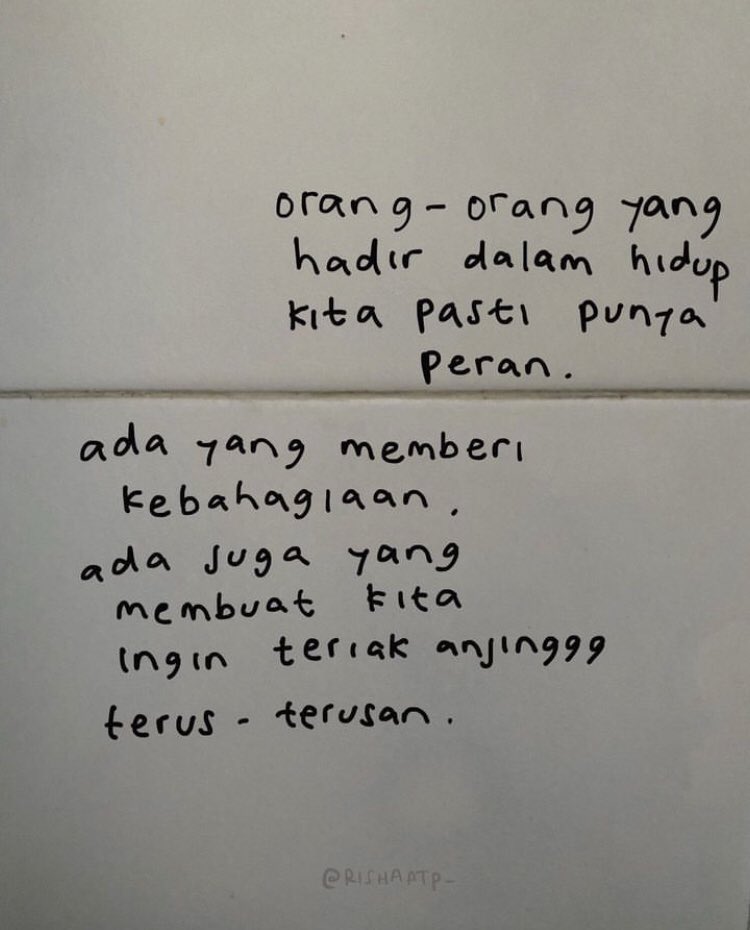 orang-orang yang
hadir dalam hidup
kita pasti punya
peran.
ada yang memberi
kebahagiaan.
ada juga yang
membuat kita
ingin teriak anjinggg
terus-terusan.
@RISHAATP_